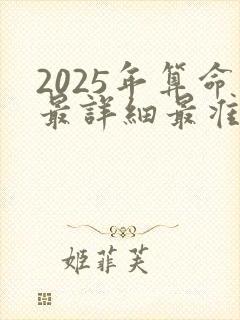 2025年算命
最詳細最准
姬菲芙